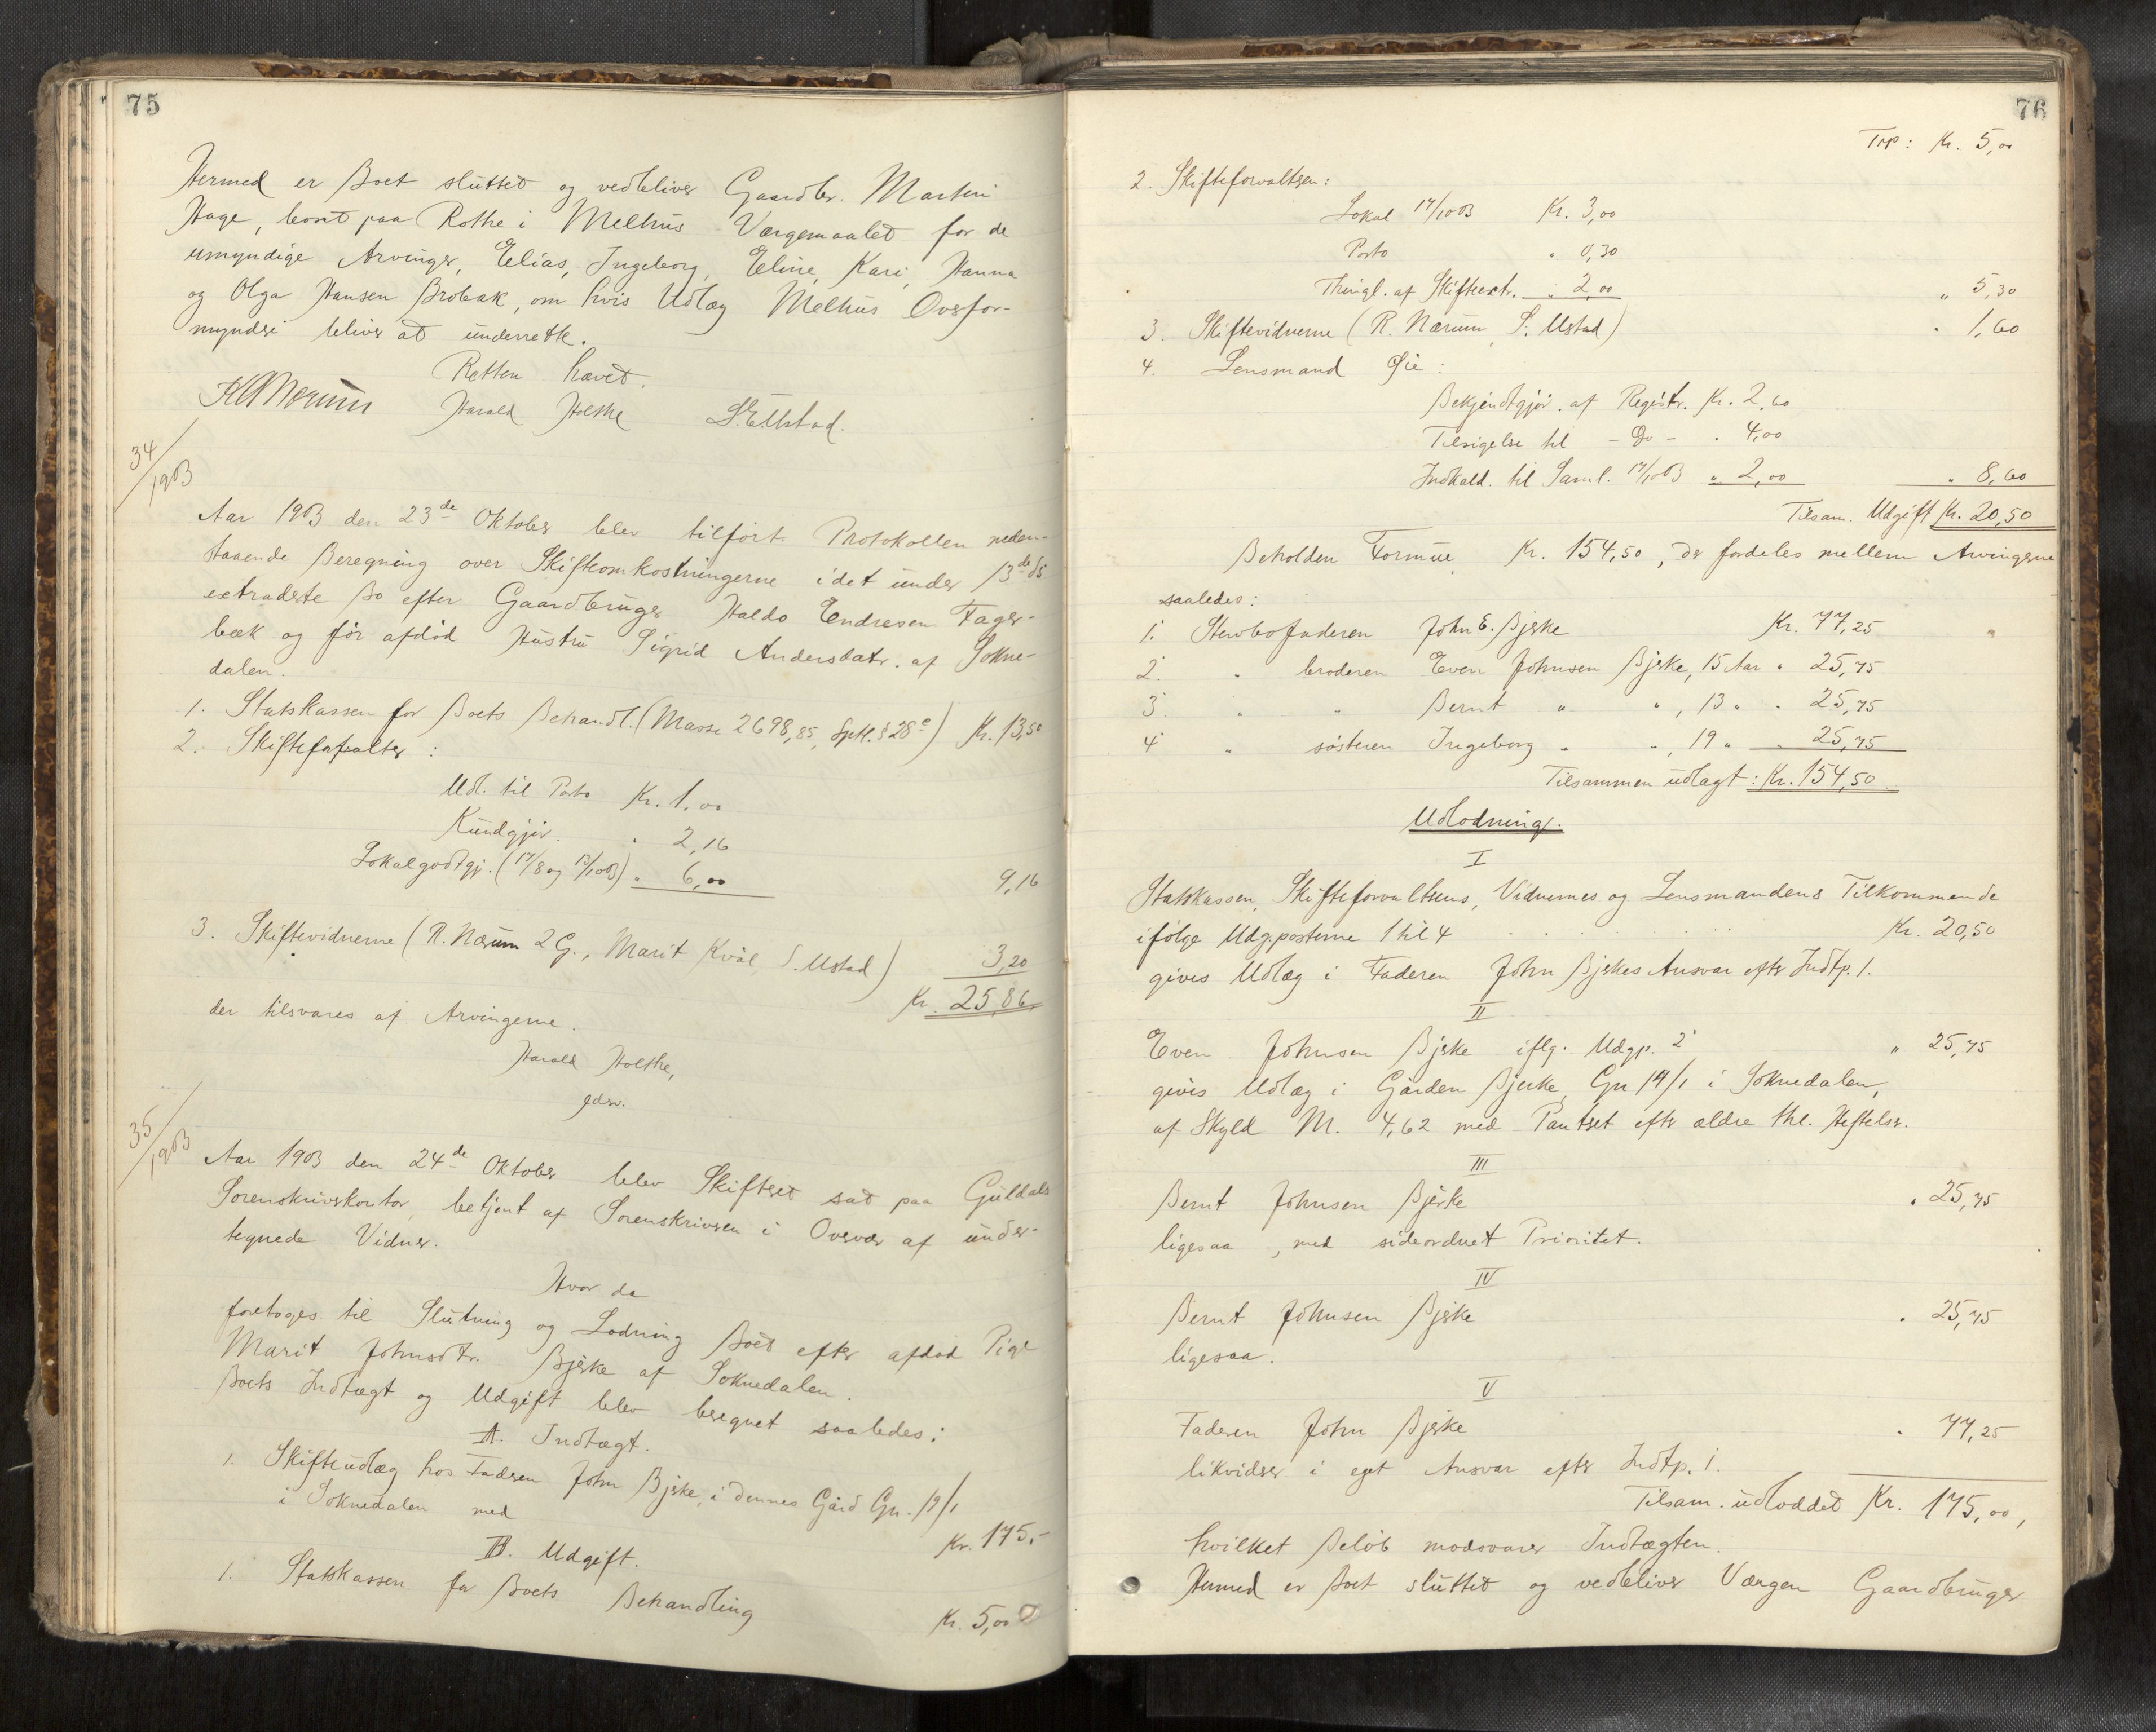 75
Hermed er Boet sluttet og vedbliver Gaardbr. Martin
Hage, bosat paa Rothe i Melhus Værgemaalet for de
umyndige Arvinger, Elias, Ingeborg, Eline, Kari, Hanna
og Olga Hansen Brobak, om hvis Udlæg Melhus Overfor-
mynderi bliver at underrette.
Retten hævet.
Harald Holthe S. E. Ustad.
34/1903
Aar 1903 den 23de Oktober blev tilført Protokollen neden-
staaende Beregning over Skifteomkostningerne i det under 13de ds
extraderte Bo efter Gaardbruger Haldo Endresen Fager-
bæk og før afdød Hustru Sigrid Andersdatr. af Sokne-
dalen.
1. Statskassen for Boets Behandl. (Masse 2698,85, Sptl. § 28 c) Kr. 13,50
2. Skifteforvalter:
Udl. til Porto Kr. 1.00
Kundgjør. " 2,16
Lokalgodtgj. (17/8 og 13/10 03) " 6,00 9,16
3. Skiftevidnerne (R. Nærum 2 G., Marit Kvål, S. Ustad) 3,20
Kr. 25,86
der tilsvares af Arvingerne.
Harald Holthe,
edsv.
35/1903
Aar 1903 den 24de Oktober blev Skifteret sat paa Guldals
Sorenskriverkontor, betjent af Sorenskriveren i Overvær af under-
tegnede Vidner.
Hvor da
foretoges til Slutning og Lodning Boet efter afdød Pige
Marit Johnsdtr. Bjerke af Soknedalen.
Boets Indtægt og Udgift blev beregnet saaledes:
A. Indtægt.
1. Skifteudlæg hos Faderen John Bjerke, i dennes Gård Gn. 19/1
i Soknedalen med Kr. 175.-
B. Udgift.
1. Statskassen for Boets Behandling Kr. 5,00
76
Trp: Kr. 5,00
2. Skifteforvalteren:
Lokal 17/10 03 Kr. 3,00
Porto " 0,30
Thingl. af Skifteextr. " 2,00 " 5,30
3. Skiftevidnerne (R. Nærum, S. Ustad) " 1,60
4. Lensmand Øie:
Bekjendtgjør. af Registr. Kr. 2,60
Tilsigelse til - Do - " 4,00
Indkald. til Saml. 17/10 03 " 2,00 " 8,60
Tilsam. Udgift Kr. 20,50
Beholden Formue Kr. 154,50, der fordeles mellem Arvingerne
saaledes:
1. Stervbofaderen John E. Bjerke Kr. 77,25
2. " broderen Even Johnsen Bjerke, 15 Aar " 25,75
3. " " Bernt " " , 13 " " 25,75
4. " søsteren Ingeborg " " , 19 " " 25,75
Tilsammen udlagt: Kr. 154,50
Udlodning.
I
Statskassen, Skifteforvalterens, Vidnernes og Lensmandens Tilkommende
ifølge Udg.posterne 1 til 4 . . . . . . Kr. 20,50
gives Udlæg i Faderen John Bjerkes Ansvar efter Indtp. 1.
II
Even Johnsen Bjerke iflg. Udgp. 2 " 25,75
gives Udlæg i Gården Bjerke, Gn 19/1 i Soknedalen,
af Skyld M. 4,62 med Panteret efter ældre thl. Heftelser.
III
Bernt Johnsen Bjerke " 25,75
ligesaa, med sideordnet Prioritet.
IV
Bernt Johnsen Bjerke " 25,75
ligesaa.
V
Faderen John Bjerke " 77,25
likviderer i eget Ansvar efter Indtp. 1.
Tilsam. udloddet Kr. 175,00,
hvilket Beløb modsvarer Indtægten.
Hermed er Boet sluttet og vedbliver Værgen Gaardbruger